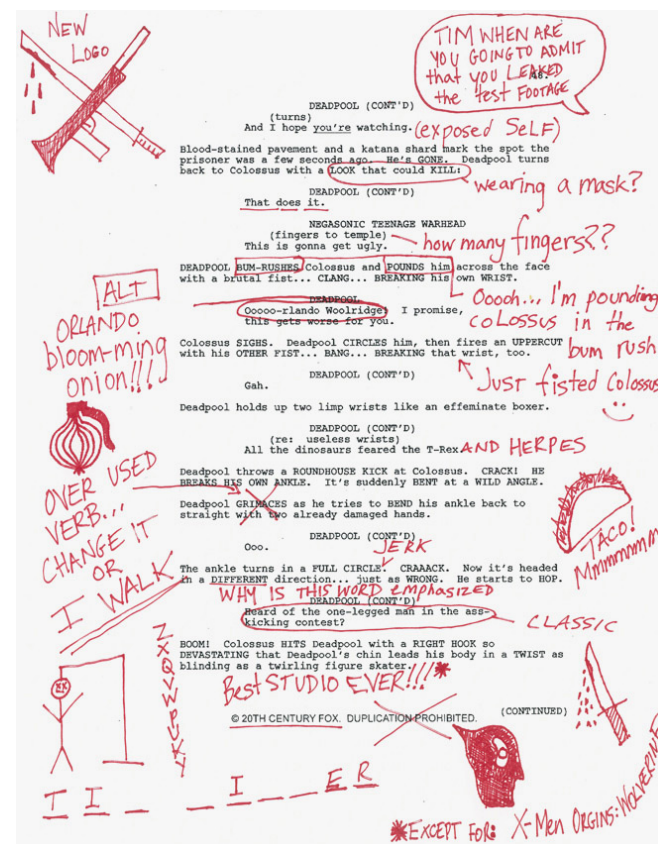 NEW
LOGO
TIM WHEN ARE
YOU GOING TO ADMIT
that you LEAKED
the test FOOTAGE
DEADPOOL (CONT'D)
(turns)
And I hope you're watching. (exposed SeLF)
Blood-stained pavement and a katana shard mark the spot the
prisoner was a few seconds ago. He's GONE. Deadpool turns
back to Colossus with a LOOK that could KILL:
wearing a mask?
DEADPOOL (CONT'D)
That does it.
NEGASONIC TEENAGE WARHEAD
(fingers to temple)
how many fingers??
This is gonna get ugly.
DEADPOOL BUM-RUSHES Colossus and POUNDS him across the face
with a brutal fist... CLANG... BREAKING his own WRIST.
ALT
ORLANDO
bloom-ming
onion!!!
Ooooh... I'm pounding
coLossus in the
bum rush
DEADPOOL
Ooooo-rlando Woolridge! I promise,
this gets worse for you.
Colossus SIGHS. Deadpool CIRCLES him, then fires an UPPERCUT
with his OTHER FIST... BANG... BREAKING that wrist, too.
Just fisted Colossus
DEADPOOL (CONT'D)
Gah.
Deadpool holds up two limp wrists like an effeminate boxer.
DEADPOOL (CONT'D)
(re: useless wrists)
All the dinosaurs feared the T-Rex AND HERPES
OVER USED
VERB...
CHANGE IT
OR
I WALK
Deadpool throws a ROUNDHOUSE KICK at Colossus. CRACK! HE
BREAKS HIS OWN ANKLE. It's suddenly BENT at a WILD ANGLE.
Deadpool GRIMACES as he tries to BEND his ankle back to
straight with two already damaged hands.
TACO!
Mmmmmmm
DEADPOOL (CONT'D)
Ooo.
JERK
The ankle turns in a FULL CIRCLE. CRAAACK. Now it's headed
in a DIFFERENT direction... just as WRONG. He starts to HOP.
WHY IS THIS WORD emphasized
DEADPOOL (CONT'D)
Heard of the one-legged man in the ass-
kicking contest?
CLASSIC
BOOM! Colossus HITS Deadpool with a RIGHT HOOK so
DEVASTING that Deadpool's chin leads his body in a TWIST as
blinding as a twirling figure skater.
Best STUDIO EVER!!!*
© 20TH CENTURY FOX. DUPLICATION PROHIBITED.
(CONTINUED)
Z
X
Q
V
W
P
U
K
Y
T I _ _ I _ _ E R
*EXCEPT FOR: X-Men ORGINS: WOLVERINE